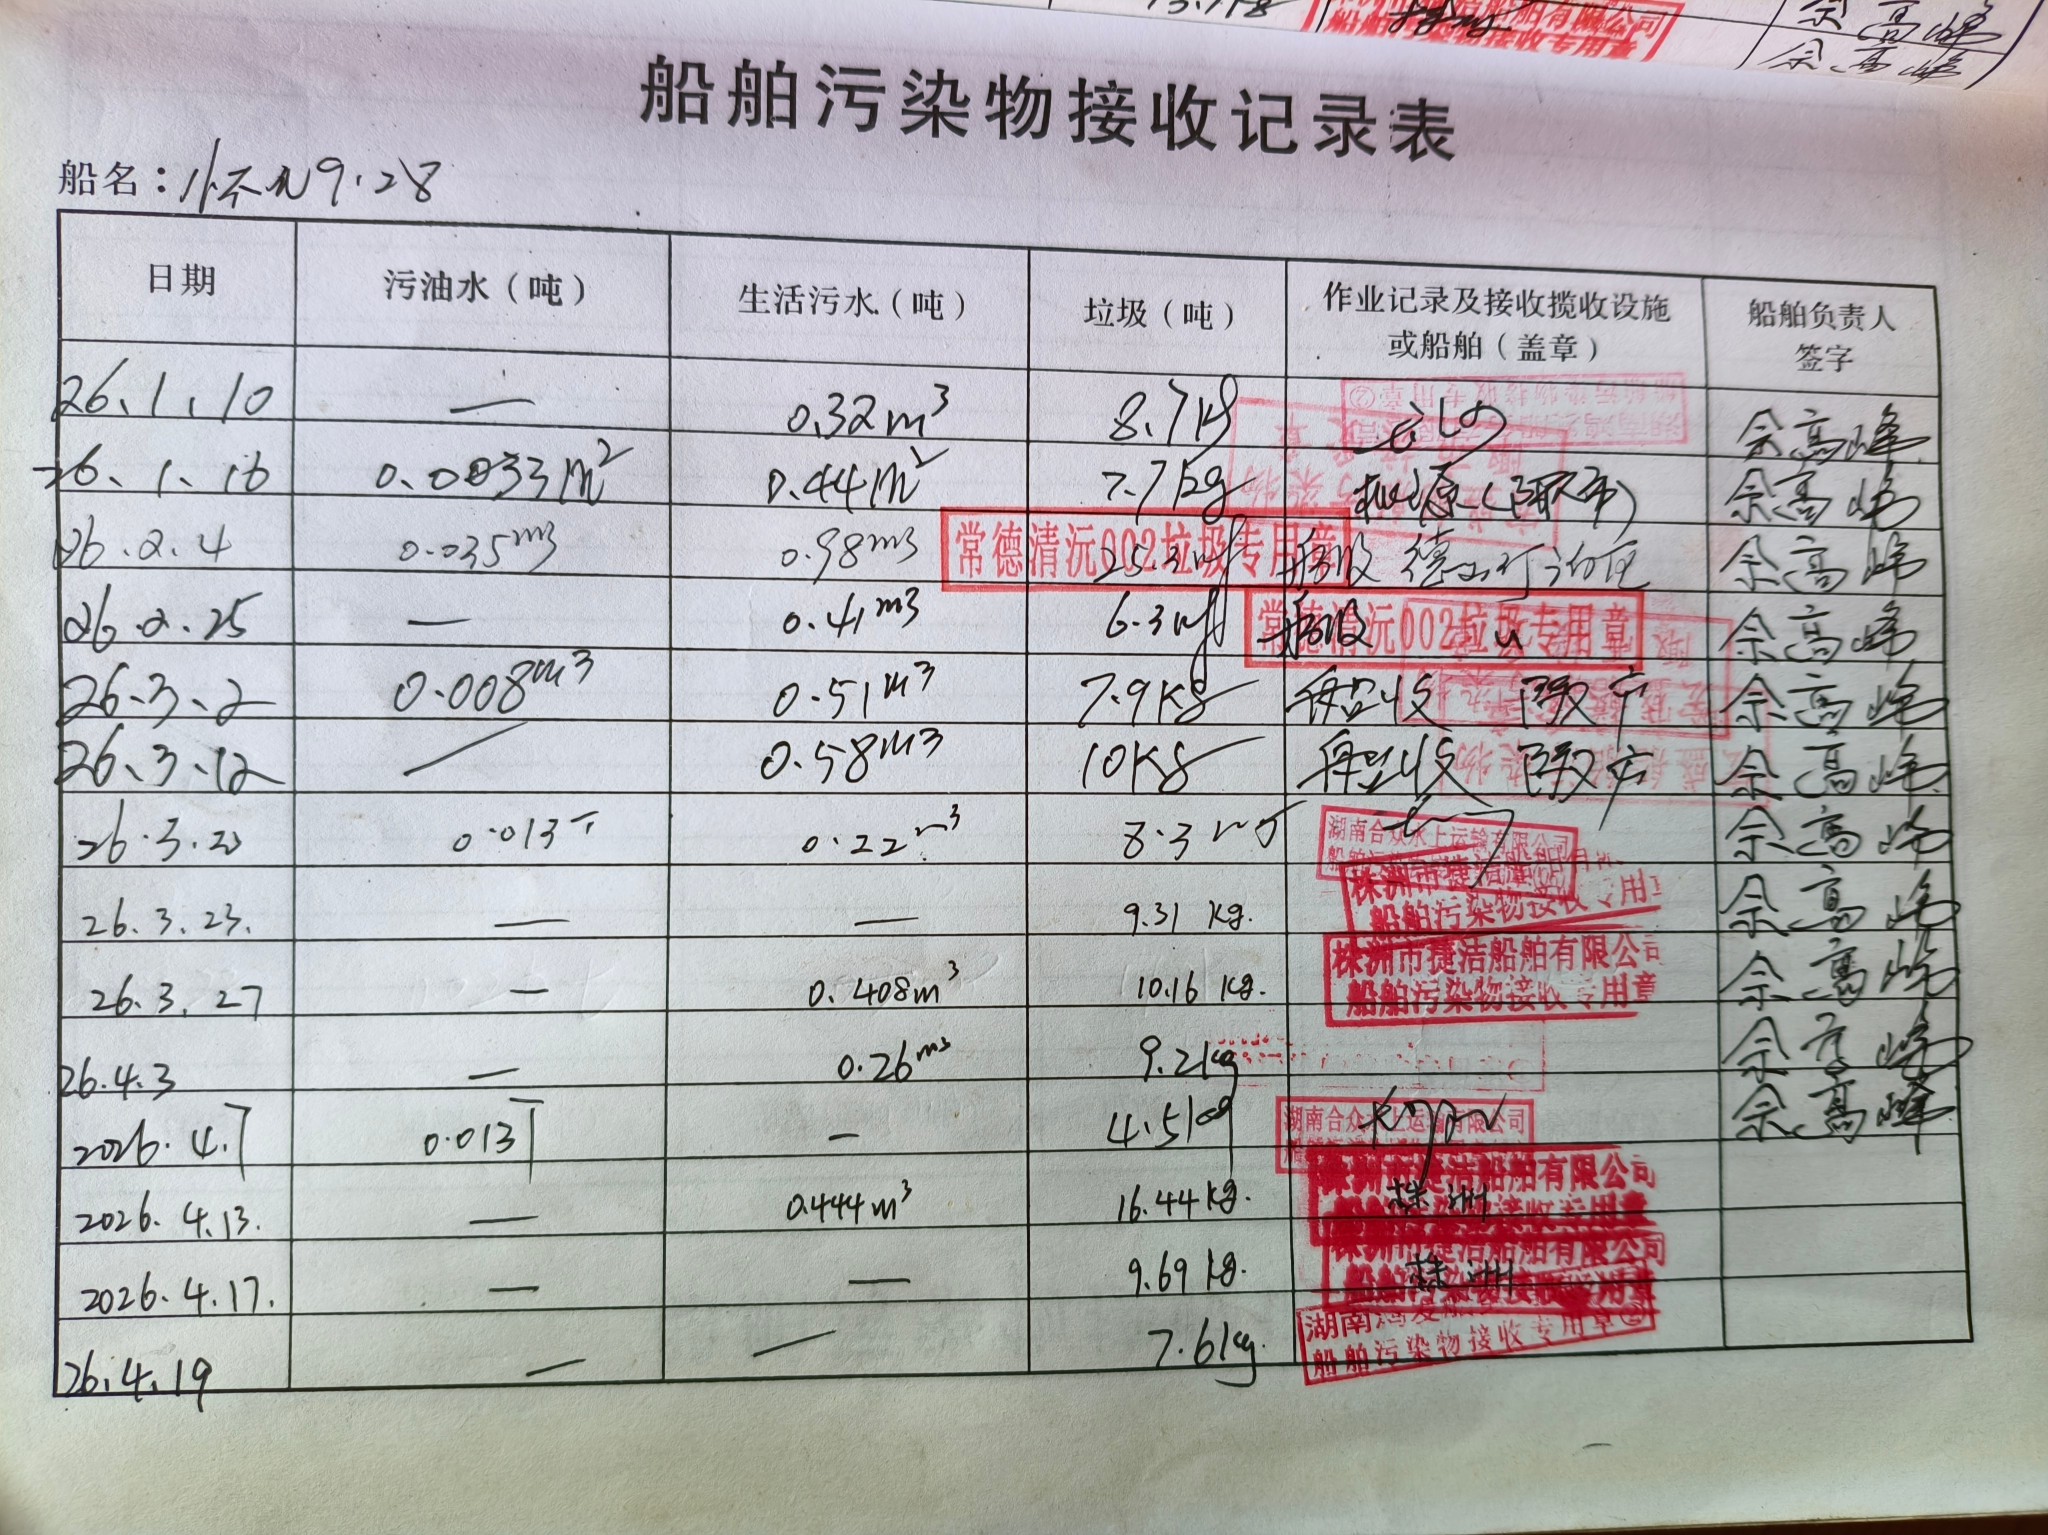 余高峰
船舶有限公司
船舶污染物接收专用章
余高峰
船舶污染物接收记录表
船名：9.28
日期 污油水（吨） 生活污水（吨） 垃圾（吨） 作业记录及接收揽收设施或船舶（盖章） 船舶负责人签字
26.1.10 — 0.32m³ 8.7kg 余高峰
26.1.16 0.0033m² 0.44m² 7.7kg 余高峰
26.2.4 0.035m3 0.98m3 25.3 常德清沅002垃圾专用章 船收 余高峰
26.2.25 — 0.41m3 6.3 船收 常德清沅002垃圾专用章 余高峰
26.3.2 0.008m3 0.51m3 7.9KG 船收 余高峰
26.3.12 — 0.58m3 10KG 船收 余高峰
0.013 0.22m3 8.3 湖南合众水上运输有限公司 余高峰
26.3.23. — — 9.31 kg. 株洲市捷洁船舶 船舶污染物接收专用章 余高峰
26.3.27 — 0.408m³ 10.16 kg. 株洲市捷洁船舶有限公司 船舶污染物接收专用章 余高峰
26.4.3 — 0.26m3 9.2kg 余高峰
2026.4.7 0.013T — 4.5kg 湖南合众水上运输有限公司 余高峰
2026.4.13. — 0.444m³ 16.44kg. 株洲市捷洁船舶有限公司 船舶污染物接收专用章 株洲
2026.4.17. — — 9.69kg. 株洲市捷洁船舶有限公司 船舶污染物接收专用章 株洲
26.4.19 — — 7.6kg. 湖南 船舶污染物接收专用章